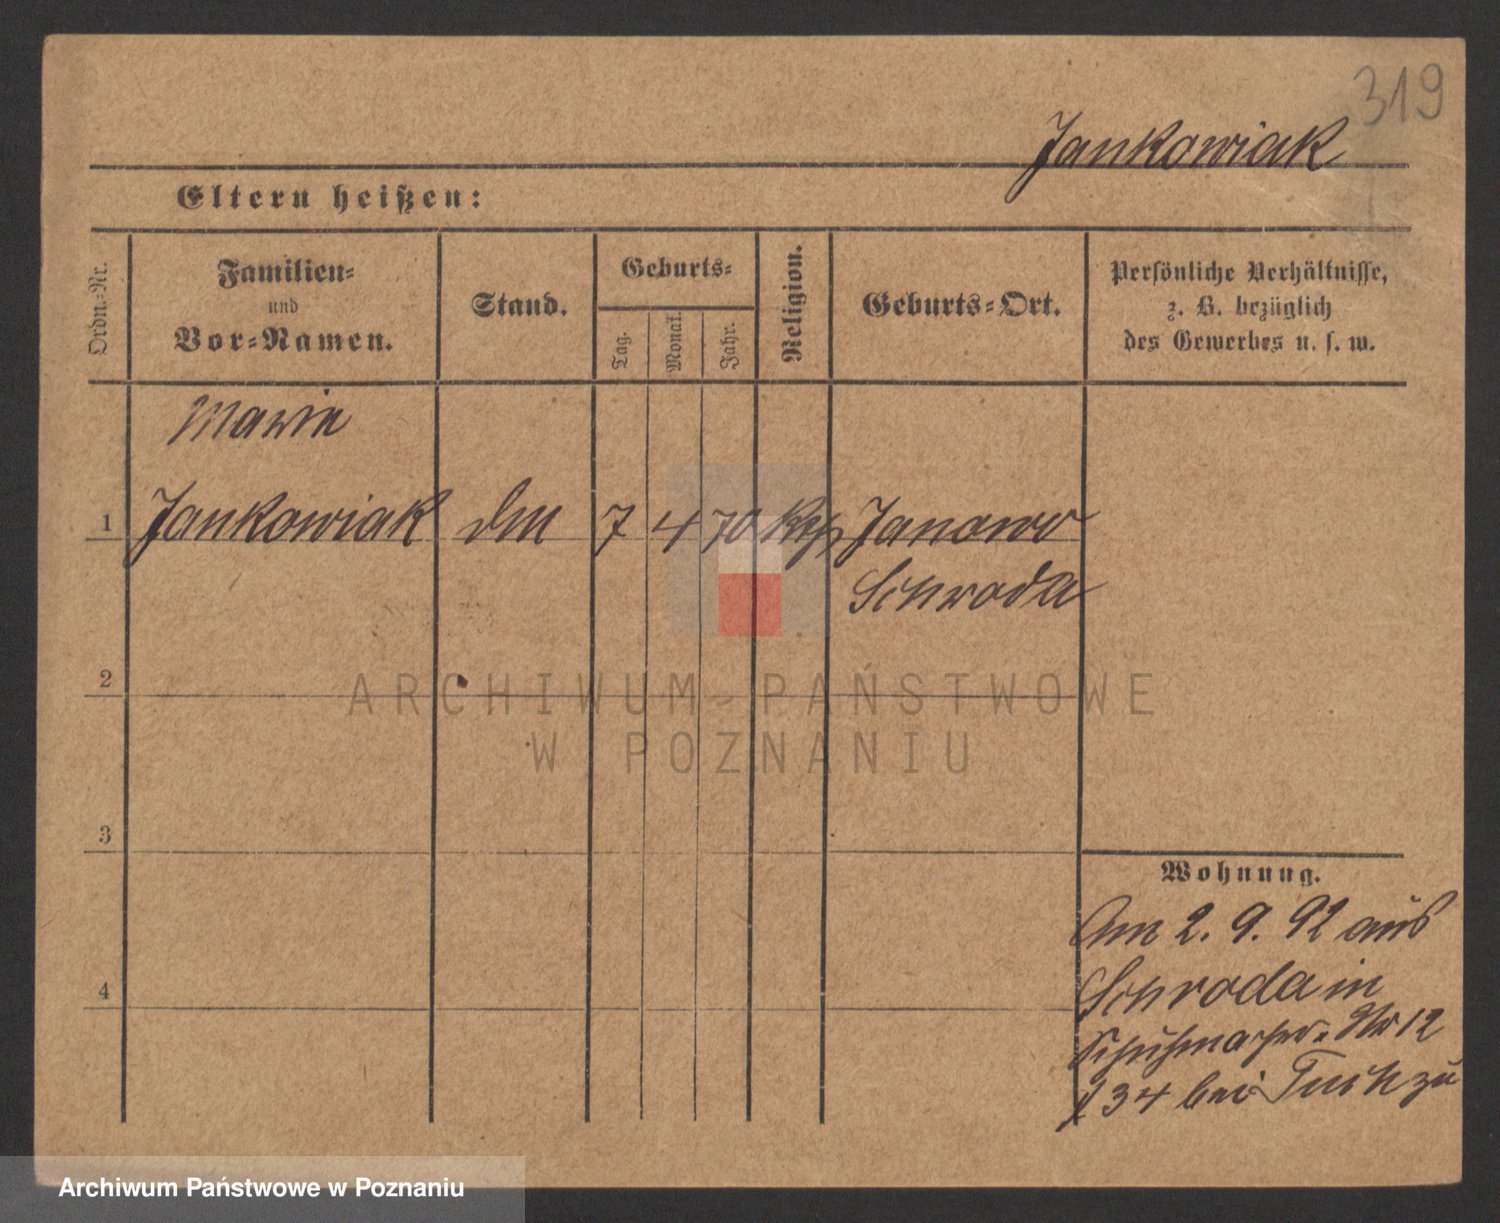 319
Jankowiak
Eltern heißen:
Ordn.-Nr.
Familien-
und
Vor-Namen.
Stand.
Geburts-
Tag.
Monat.
Jahr.
Religion.
Geburts-Ort.
Persönliche Verhältnisse,
z. B. bezüglich
des Gewerbes u. s. w.
Marie
1 Jankowiak 7 4 70 Janowo
Schroda
2
ARCHIWUM PAŃSTWOWE
W POZNANIU
3
Wohnung.
Am 2. 9. 92 aus
4
Schroda in
Schuhmacher. Str 12
34 bei
Archiwum Państwowe w Poznaniu